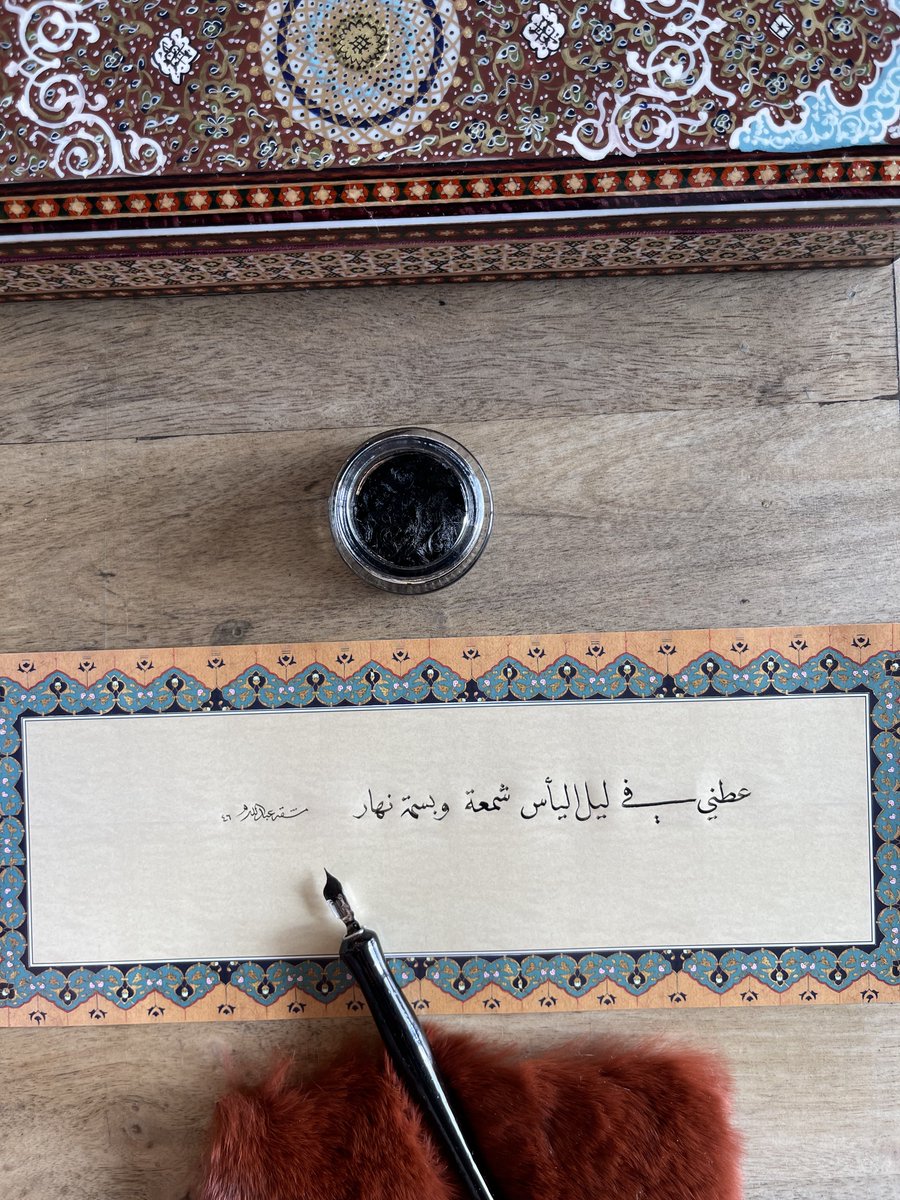 عطني في ليل اليأس شمعة وبسمة نهار